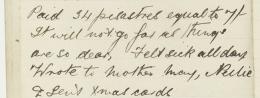 Paid 34 piastres equal to 7/-
It will not go far as things
are so dear, Felt sick all day
Wrote to Mother May, Nellie
& Len's Xmas cards